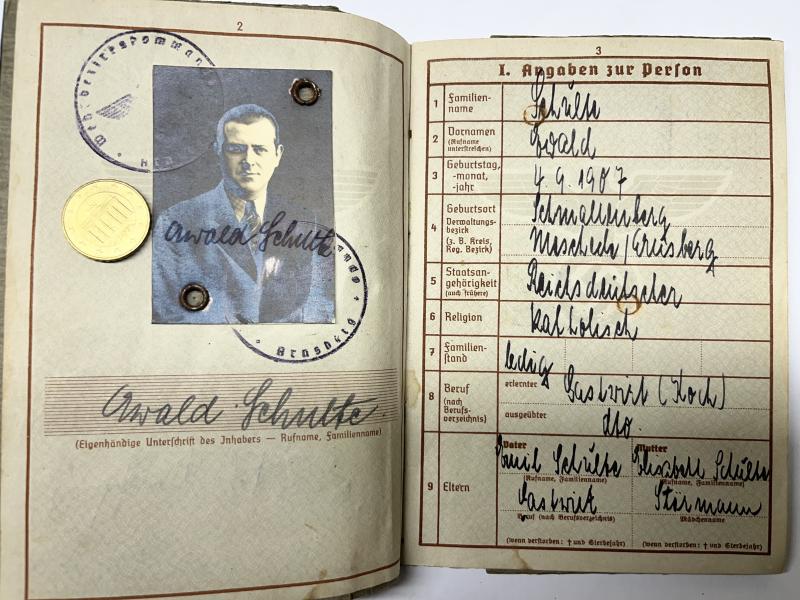 2
Wehrbezirkskomman
Arn
Ewald Schulte
Arnsberg
Ewald Schulte.
(Eigenhändige Unterschrift des Inhabers — Rufname, Familienname)
3
I. Angaben zur Person
1 Familien-
name
Schulte
2 Vornamen
(Rufname
unterstreichen)
Ewald
3 Geburtstag,
-monat,
-jahr
4. 9. 1907
4 Geburtsort
Verwaltungs-
bezirk
(z. B. Kreis,
Reg. Bezirk)
Schmallenberg
Meschede/Arnsberg
5 Staatsan-
gehörigkeit
(auch frühere)
Reichsdeutscher
6 Religion
katholisch
7 Familien-
stand
ledig
8 Beruf
(nach
Berufs-
verzeichnis)
erlernter
Gastwirt (Koch)
ausgeübter
dto.
9 Eltern
Vater
Mutter
Emil Schulte
Elisabeth Schulte
(Rufname, Familienname)
(Rufname, Familienname)
Gastwirt
Störmann
Beruf (nach Berufsverzeichnis)
Mädchenname
(wenn verstorben: † und Sterbejahr)
(wenn verstorben: † und Sterbejahr)